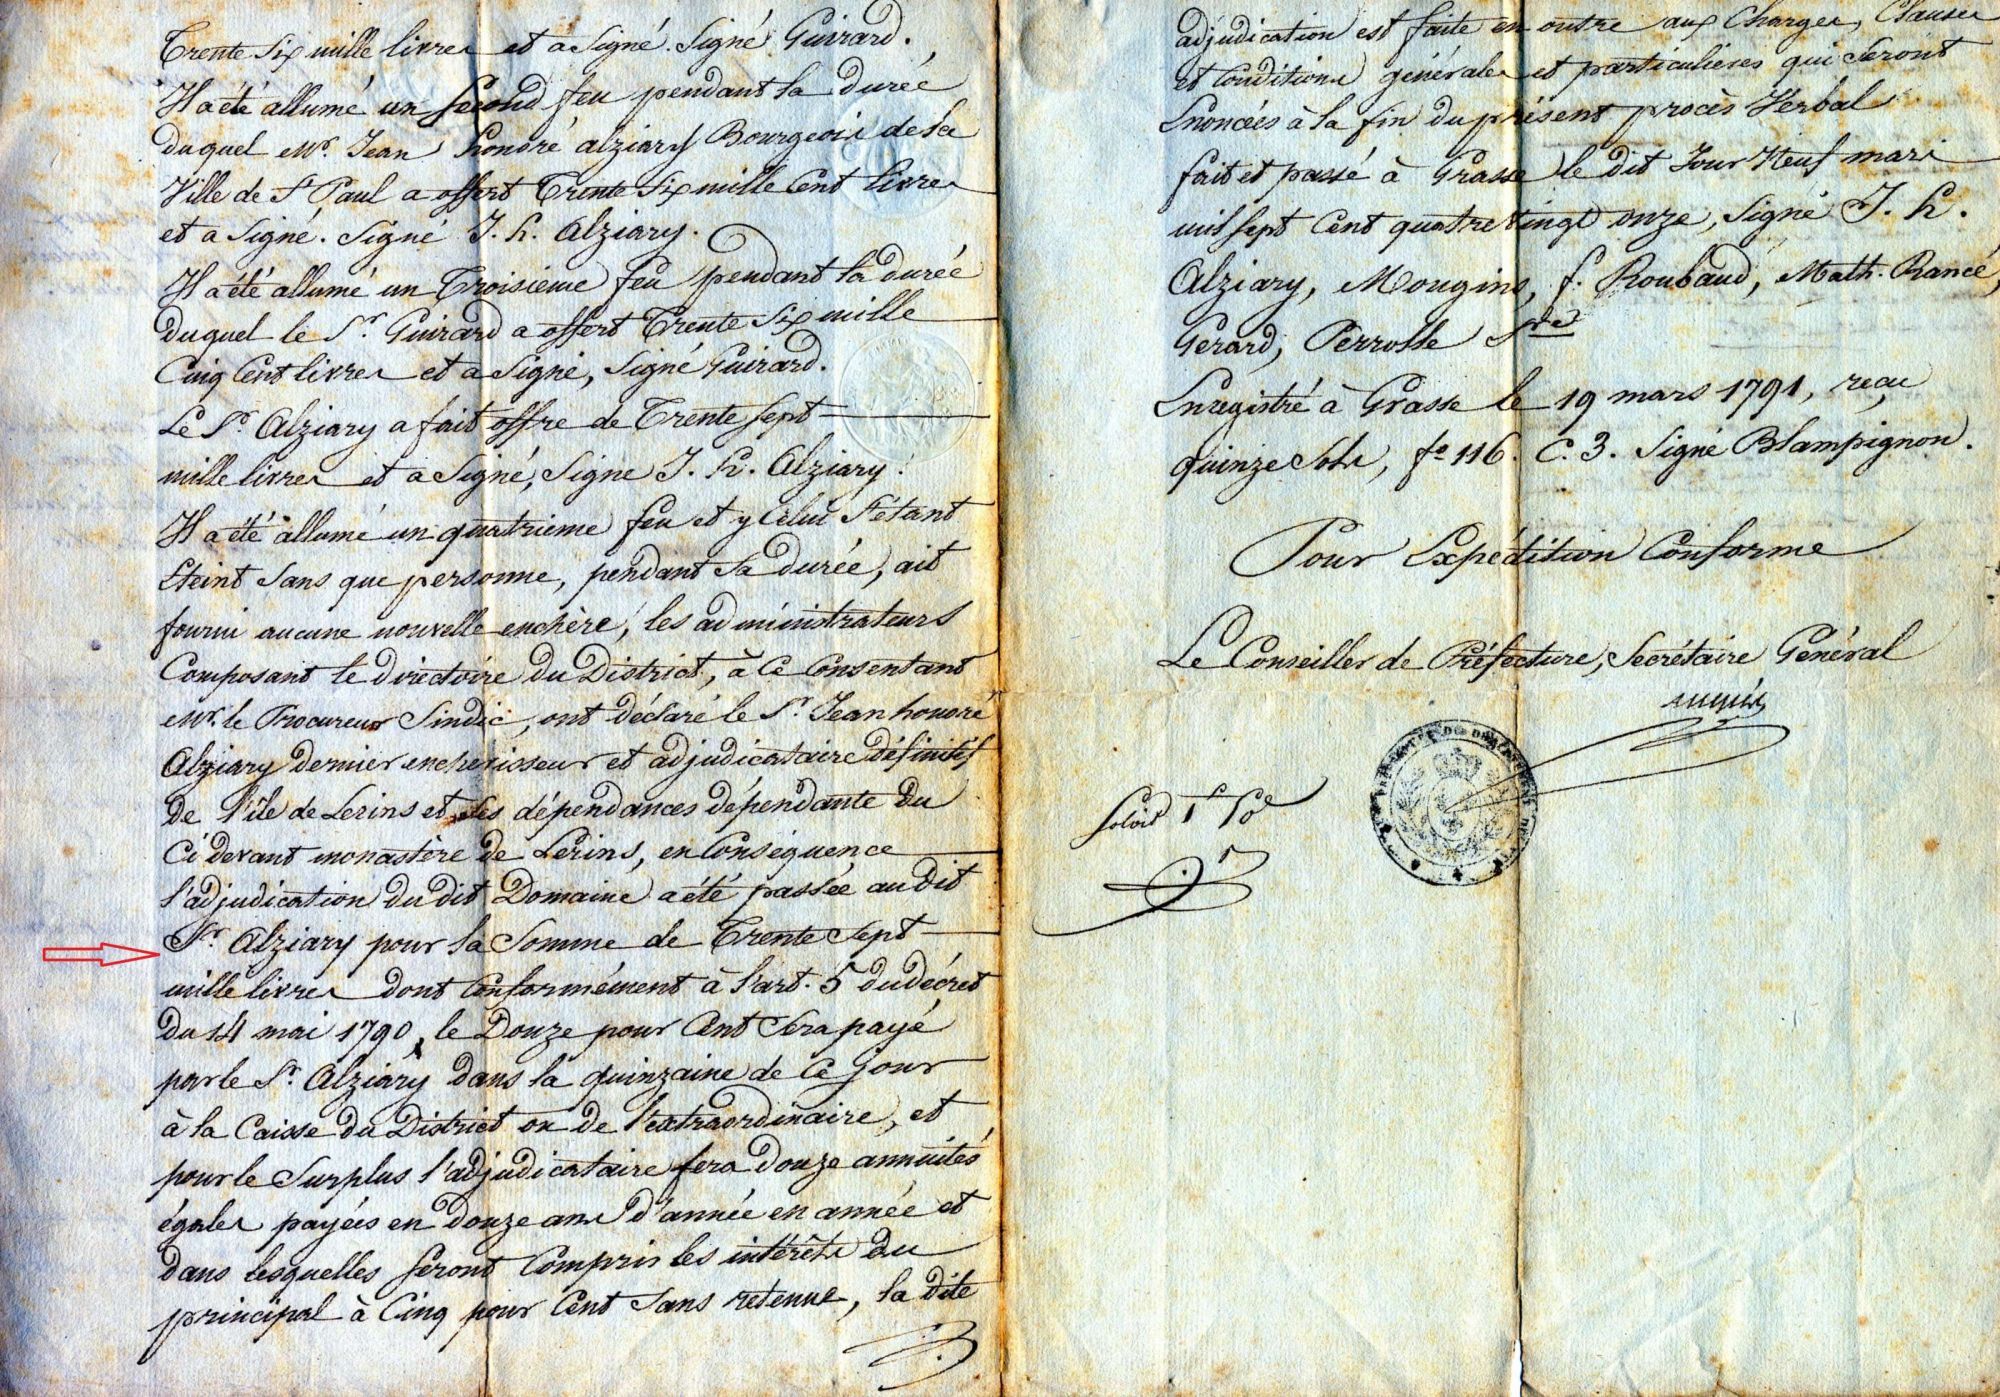 Trente six mille livres et a Signé. Signé Guirard.
Il a été allumé un second feu pendant la durée
duquel Mr. Jean honoré alziary Bourgeois de la
Ville de St Paul a offert Trente Six mille Cent livres
et a Signé. Signé J. h. Alziary.
Il a été allumé un Troisieme feu pendant la durée
duquel le Sr. Guirard a offert Trente Six mille
Cinq Cent livres et a Signé, Signé Guirard.
Le Sr. Alziary a fait offre de Trente sept
mille livres et a Signé, Signe J. h. Alziary.
Il a été allumé un quatrieme feu et y Celui S'étant
Eteint Sans que personne, pendant Sa durée, ait
fourni aucune nouvelle enchère, les administrateurs
Composant le directoire du District, à Ce Consentant
Mr. le Procureur Sindic, ont déclaré le Sr. Jean honoré
Alziary dernier encherisseur et adjudicataire définitif
de l'île de Lerins et des dépendances dépendante du
Ci devant monastère de Lerins, en Conséquence
l'adjudication du dit Domaine a été passée au dit
Sr. Alziary pour la Somme de Trente Sept
mille livres dont Conformément à l'art. 5 du décret
du 14 mai 1790, le Douze pour Cent Sera payé
par le Sr. Alziary dans la quinzaine de Ce Jour
à la Caisse du District ou de l'extraordinaire, et
pour le Surplus l'adjudicataire fera douze annuités
égales payées en douze ans d'année en année et
dans lesquelles Seront Compris les intérêts du
principal à Cinq pour Cent Sans retenue, la dite
adjudication est faite en outre aux Charges, Clauses
et Conditions générales et particulieres qui Seront
Enoncées à la fin du présent procès Verbal
fait et passé à Grasse le dit Jour Neuf mars
mil sept Cent quatre vingt onze, Signé J. h.
Alziary, Mougins, f. Roubaud, Math. Rancé,
Gerard, Perrolle Sre
Enregistré à Grasse le 19 mars 1791, reçu
quinze Sols, fo 116. C. 3. Signé Blampignon.
Pour Expédition Conforme
Le Conseiller de Préfecture, Secrétaire Général